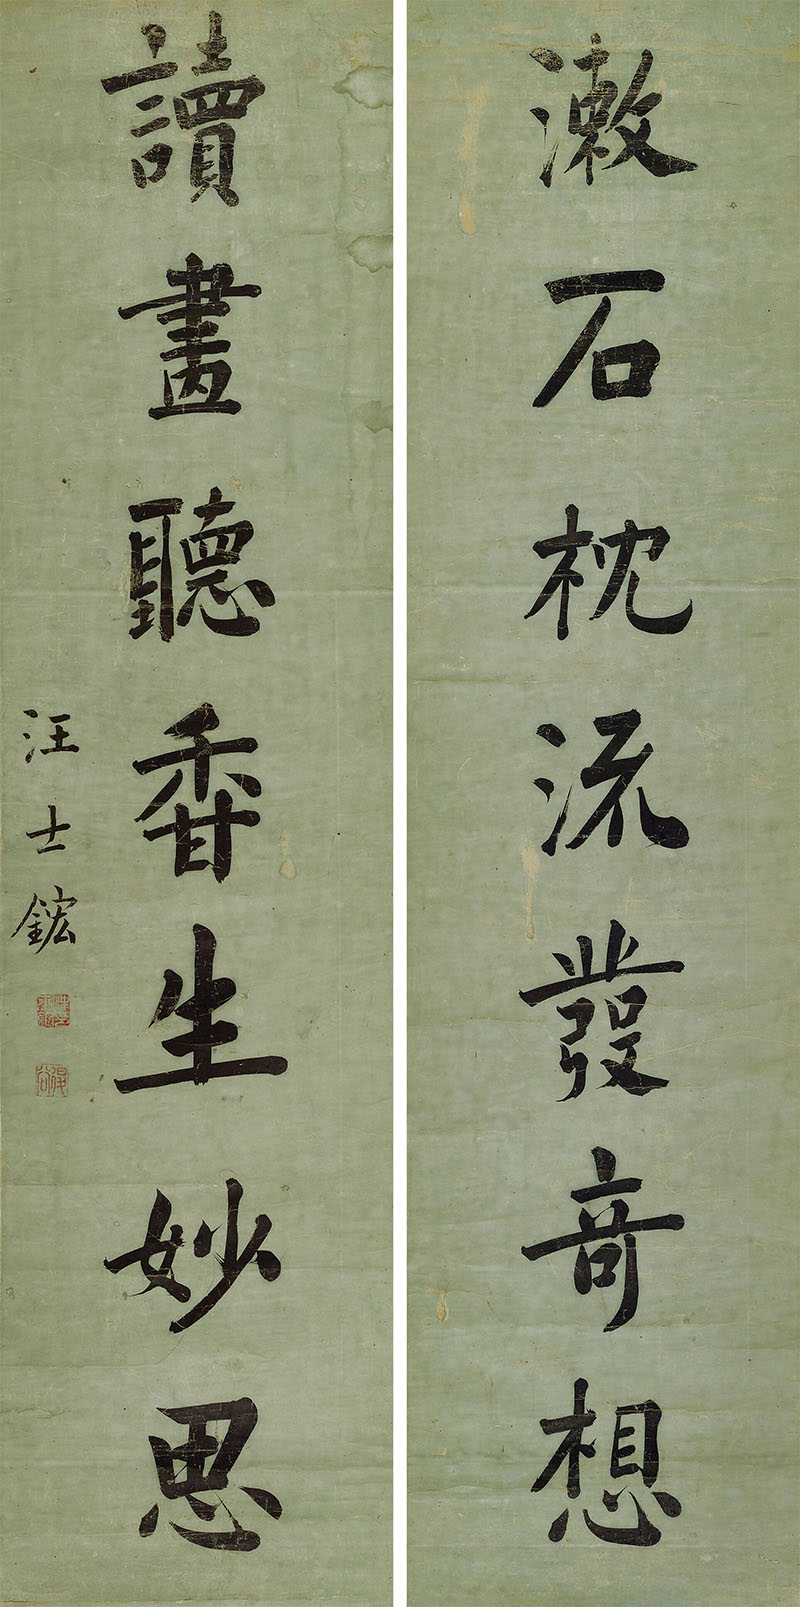 漱石枕流發奇想
讀畫聽香生妙思
汪士鋐